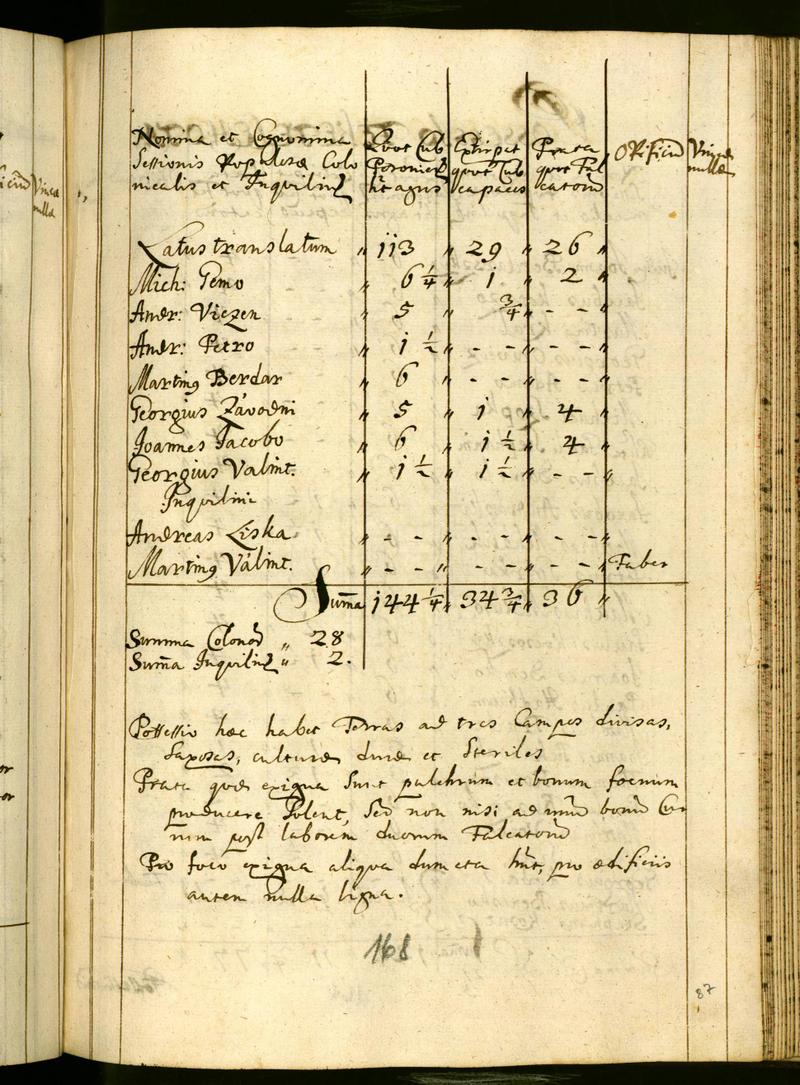 Nomina et Cognomina
Sessionis Populosæ Colo
nicalis et Inquilin
Quot Cub
Posonien
hnt agros
Extirpat
quot Cub
capaces
Prata
quot Fal
catorū
Opificiū
Vineæ
nullæ
Latus translatum " 113 " 29 " 26 "
Mich: Gemo " 6 1/4 " 1 " 2 "
Andr: Viezen " 5 " 3/4 " - - "
Andr: Petro " 1 1/2 " - - " - - "
Martinꝰ Berdar " 6 " - - " - - "
Georgius Závodni " 5 " 1 " 4 "
Joannes Jacobo " 6 " 1 1/2 " 4 "
Georgius Valint. " 1 1/2 " 1 1/2 " - - "
Inquilini
Andreas Liska " - - " - - " - - "
Martinꝰ Válint. " - - " - - " - - " Faber
Sum̄a 144 1/4 " 34 3/4 " 36 "
Summa Colonor " 28
Sum̄a Inquilin " 2.
Possessio hæc habet Terras ad tres Campos divisas,
Saxosas, culturæ duræ et Steriles
Prata quæ exigua Sunt pulchrum et bonum foenum
producere Solent, Sed non nisi ad unū bonū Cur
rum post laborem duorum Falcatorū
Pro foco exigua aliqua dumeta hnt, pro ædificiis
autem nulla ligna.
168
87